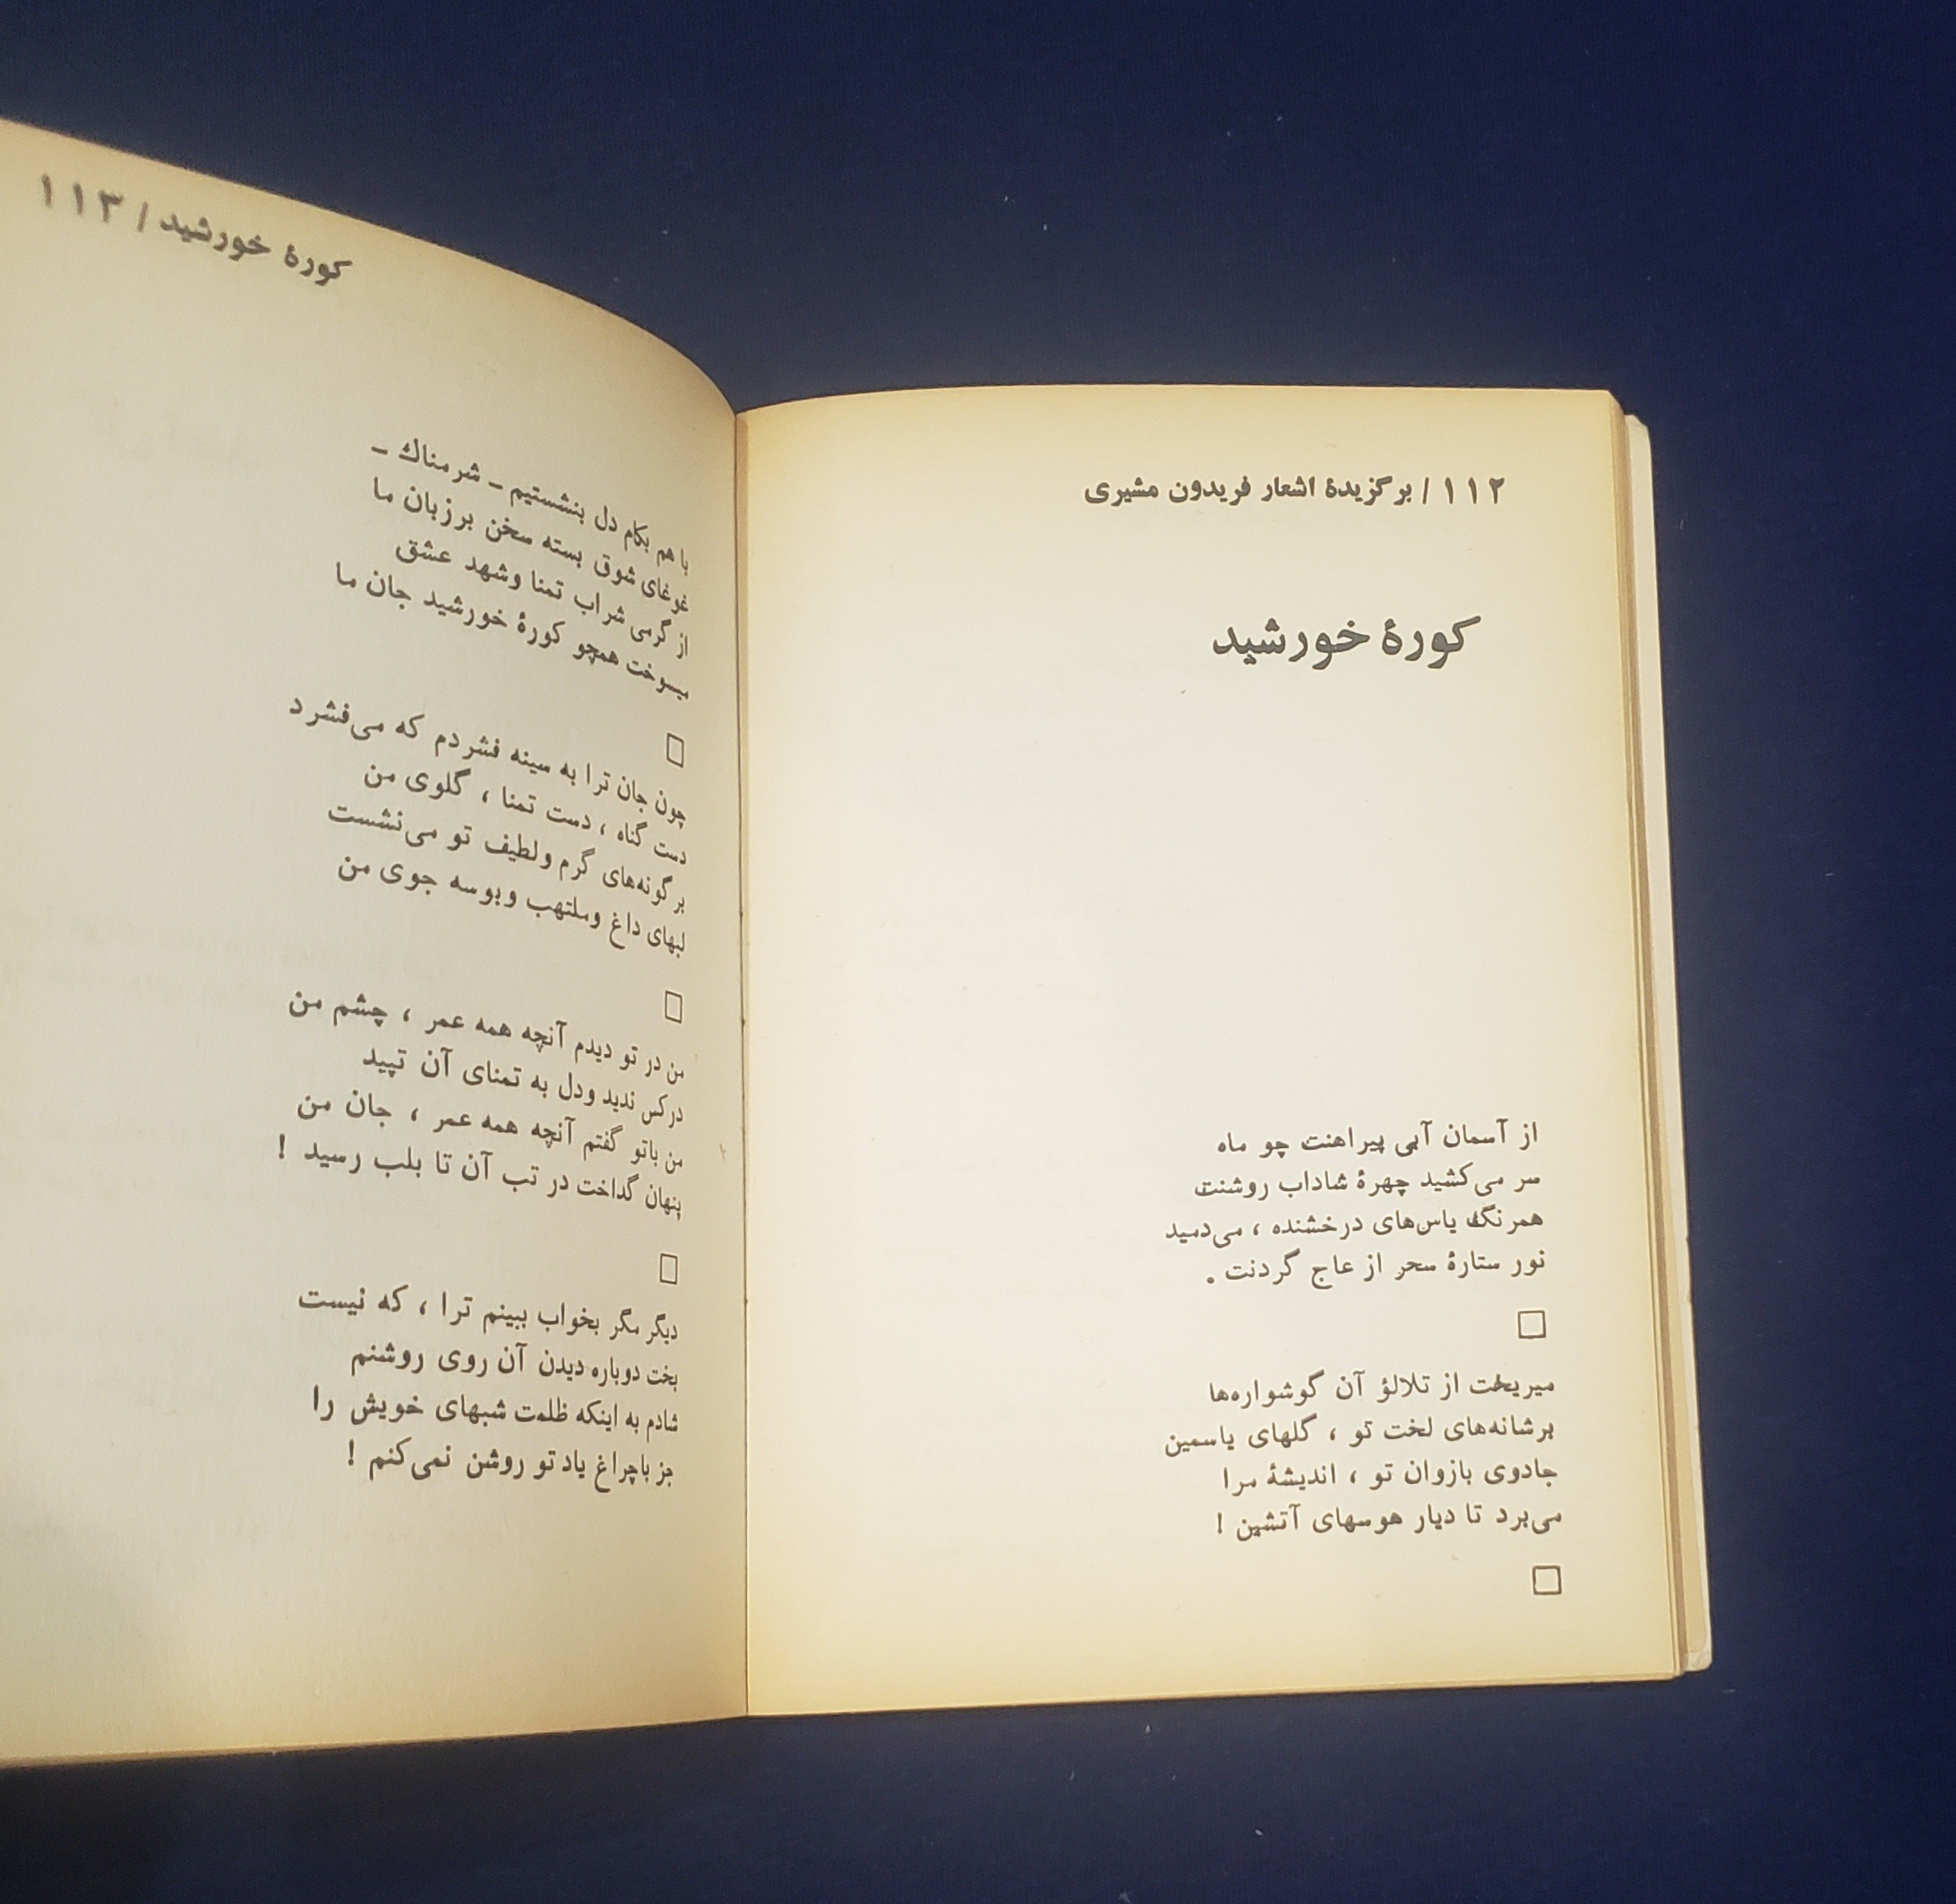 ۱۱۲ / برگزیدهٔ اشعار فریدون مشیری
کورهٔ خورشید
از آسمان آبی پیراهنت چو ماه
سر می‌کشید چهرهٔ شاداب روشنت
همرنگ یاس‌های درخشنده ، می‌دمید
نور ستارهٔ سحر از عاج گردنت .
□
میریخت از تلالؤ آن گوشواره‌ها
برشانه‌های لخت تو ، گلهای یاسمین
جادوی بازوان تو ، اندیشهٔ مرا
می‌برد تا دیار هوسهای آتشین !
□
کورهٔ خورشید / ۱۱۳
با هم بکام دل بنشستیم ـ شرمناك ـ
غوغای شوق بسته سخن برزبان ما
از گرمی شراب تمنا وشهد عشق
میسوخت همچو کورهٔ خورشید جان ما
□
چون جان ترا به سینه فشردم که می‌فشرد
دست گناه ، دست تمنا ، گلوی من
بر گونه‌های گرم ولطیف تو می‌نشست
لبهای داغ وملتهب وبوسه جوی من
□
من در تو دیدم آنچه همه عمر ، چشم من
درکس ندید ودل به تمنای آن تپید
من باتو گفتم آنچه همه عمر ، جان من
پنهان گداخت در تب آن تا بلب رسید !
□
دیگر مگر بخواب ببینم ترا ، که نیست
بخت دوباره دیدن آن روی روشنم
شادم به اینکه ظلمت شبهای خویش را
جز باچراغ یاد تو روشن نمی‌کنم !